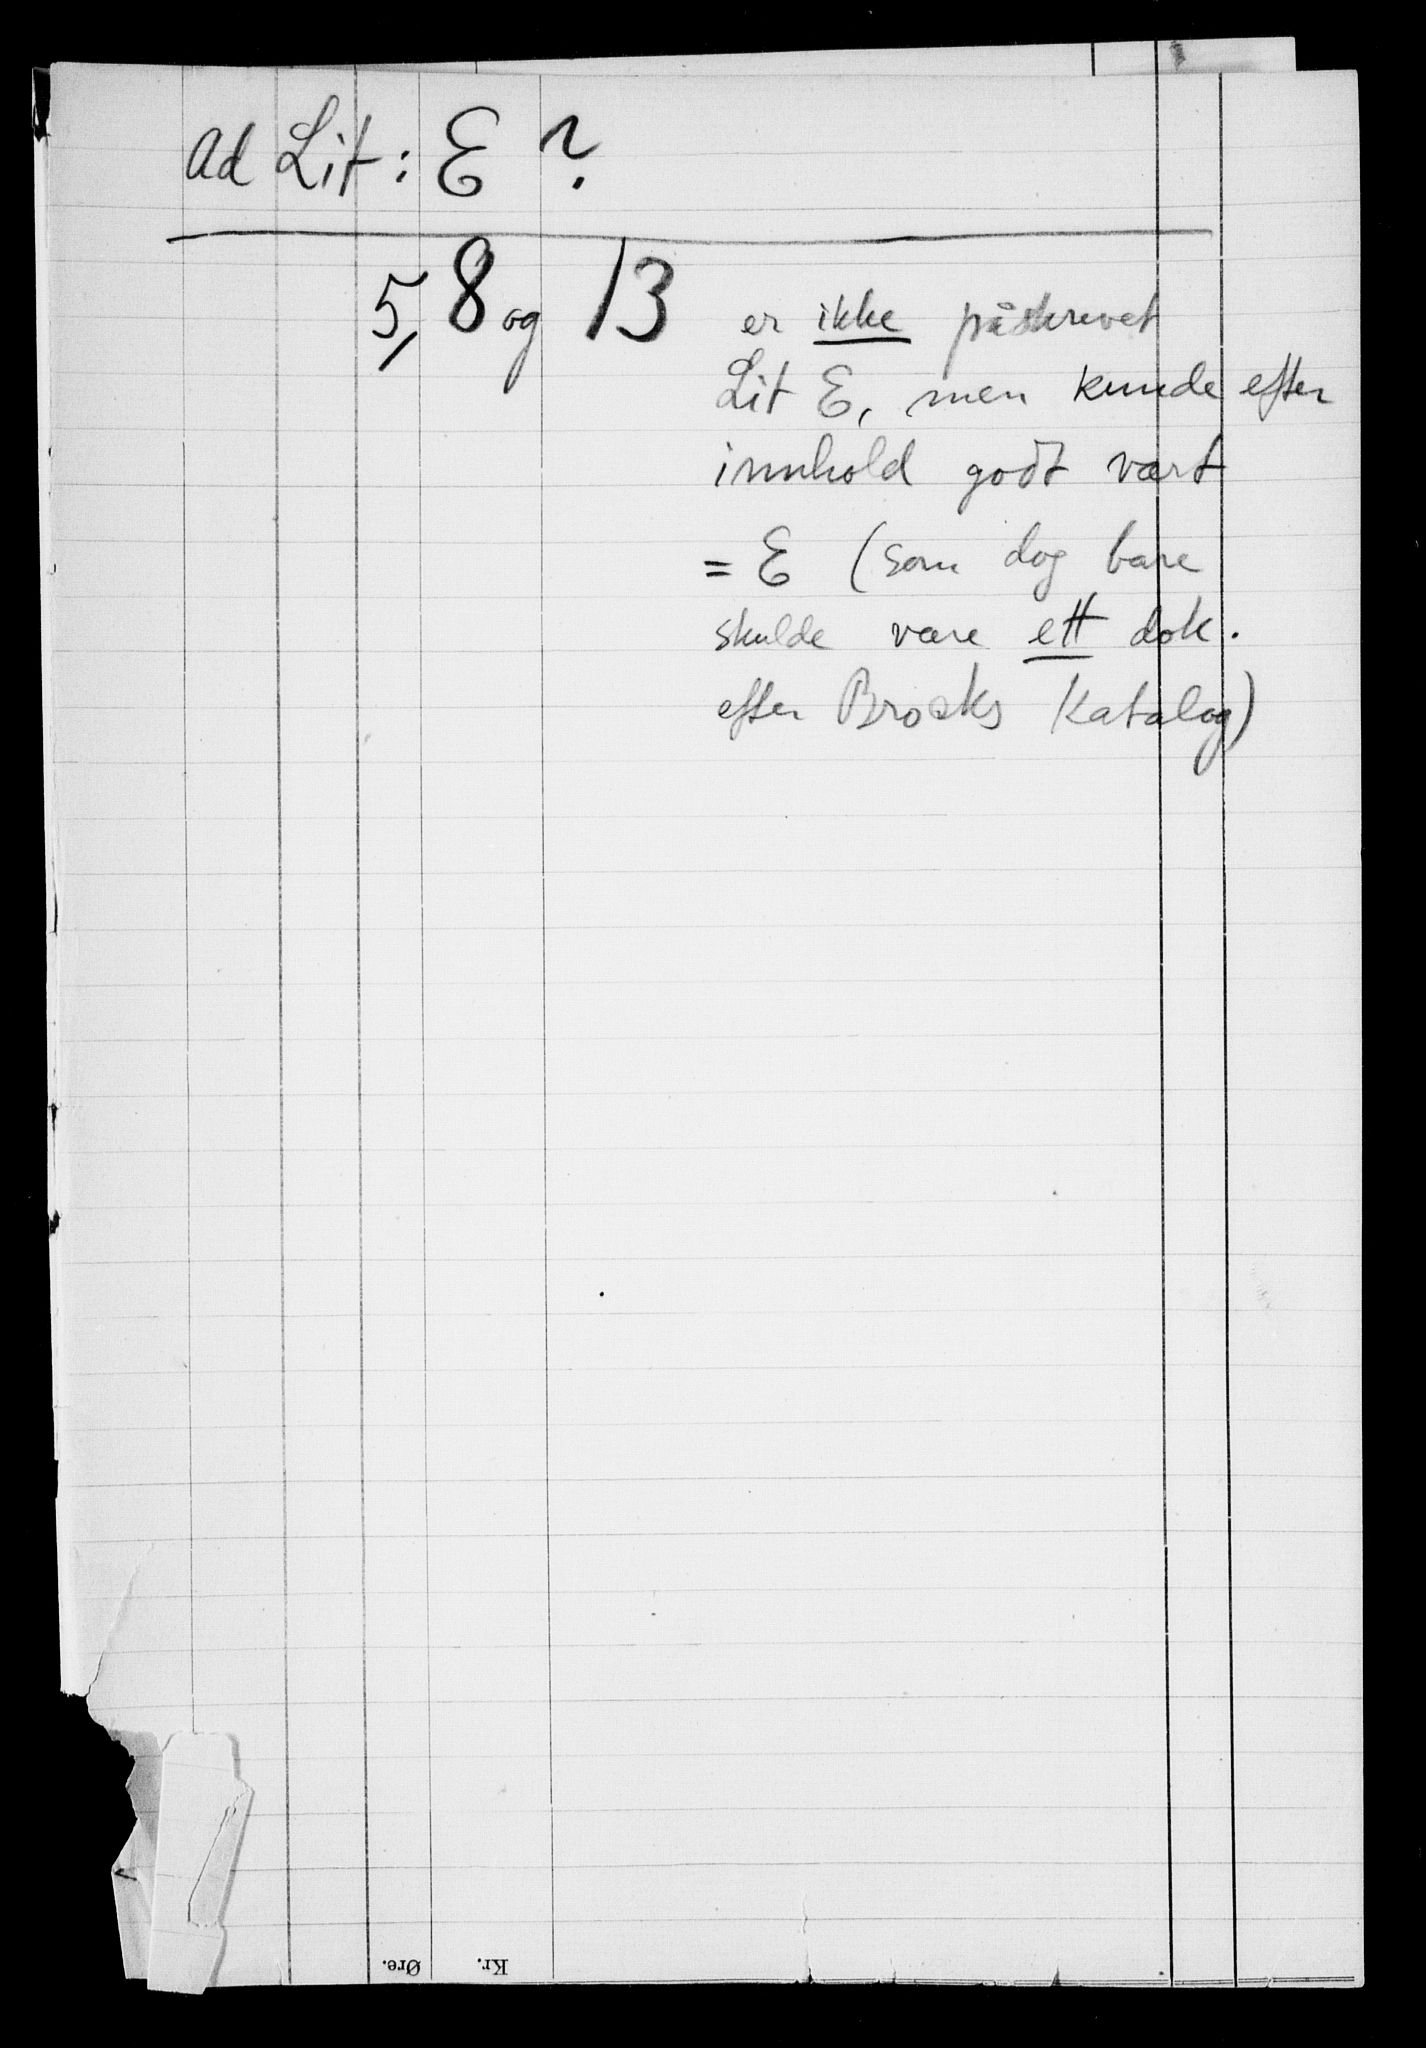 Ad Lit: E ?
5, 8 og 13 er ikke påskrevet
Lit E, men kunde efter
innhold godt vært
= E (som dog bare
skulde være ett dok.
efter Brocks Katalog)
Øre. Kr.